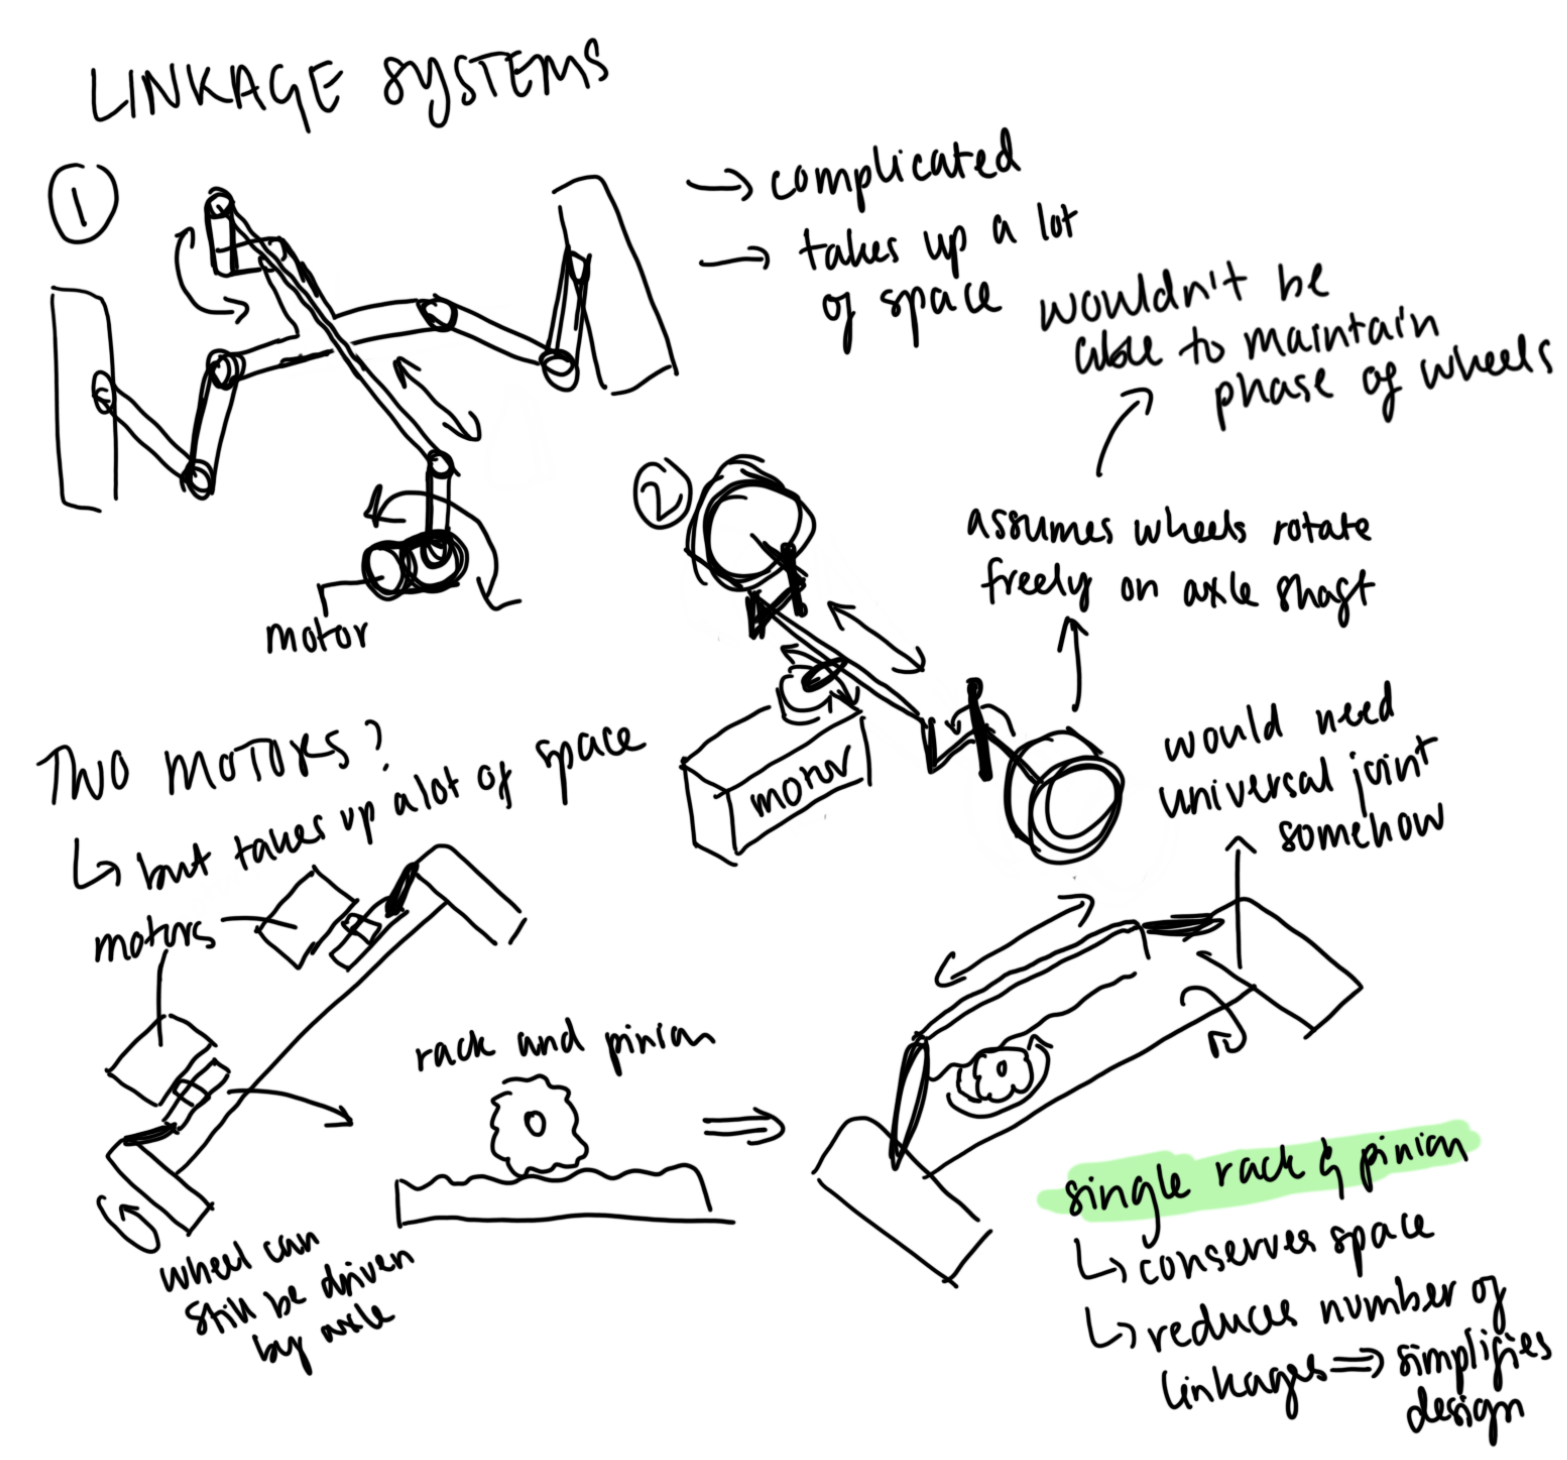 LINKAGE SYSTEMS
1
→ complicated
→ takes up a lot
of space
motor
2
motor
wouldn't be
able to maintain
phase of wheels
assumes wheels rotate
freely on axle shaft
would need
universal joint
somehow
TWO MOTORS?
↳ but takes up a lot of space
motors
wheel can
still be driven
by axle
rack and pinian
⇒
single rack & pinian
↳ conserves space
↳ reduces number of
linkages ⇒ simplifies
design